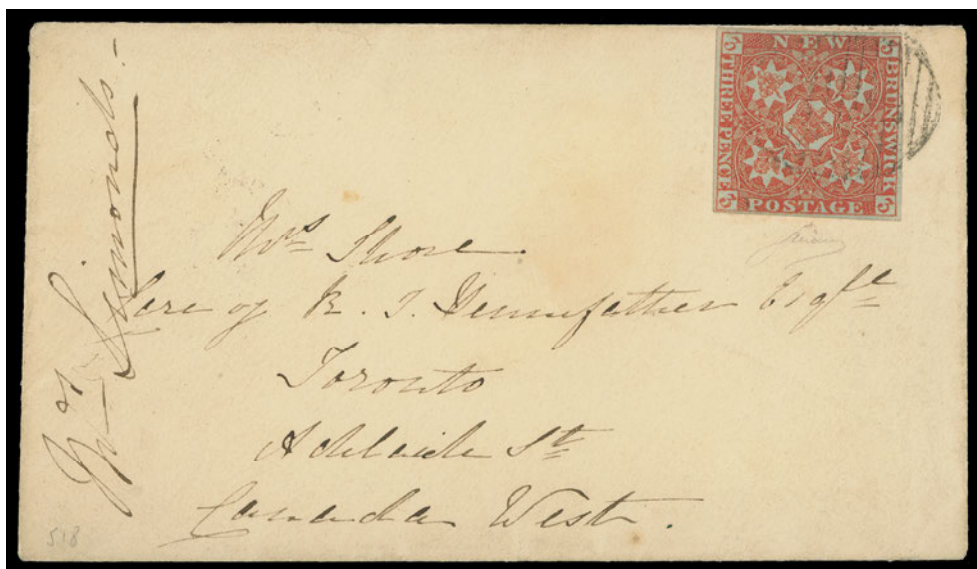 NEW
BRUNSWICK
THREE PENCE
POSTAGE
3 3
3 3
Mrs Shore
Care of R. T. Pennefather Esqre
Toronto
Adelaide St
Canada West.
Simonds.-
518